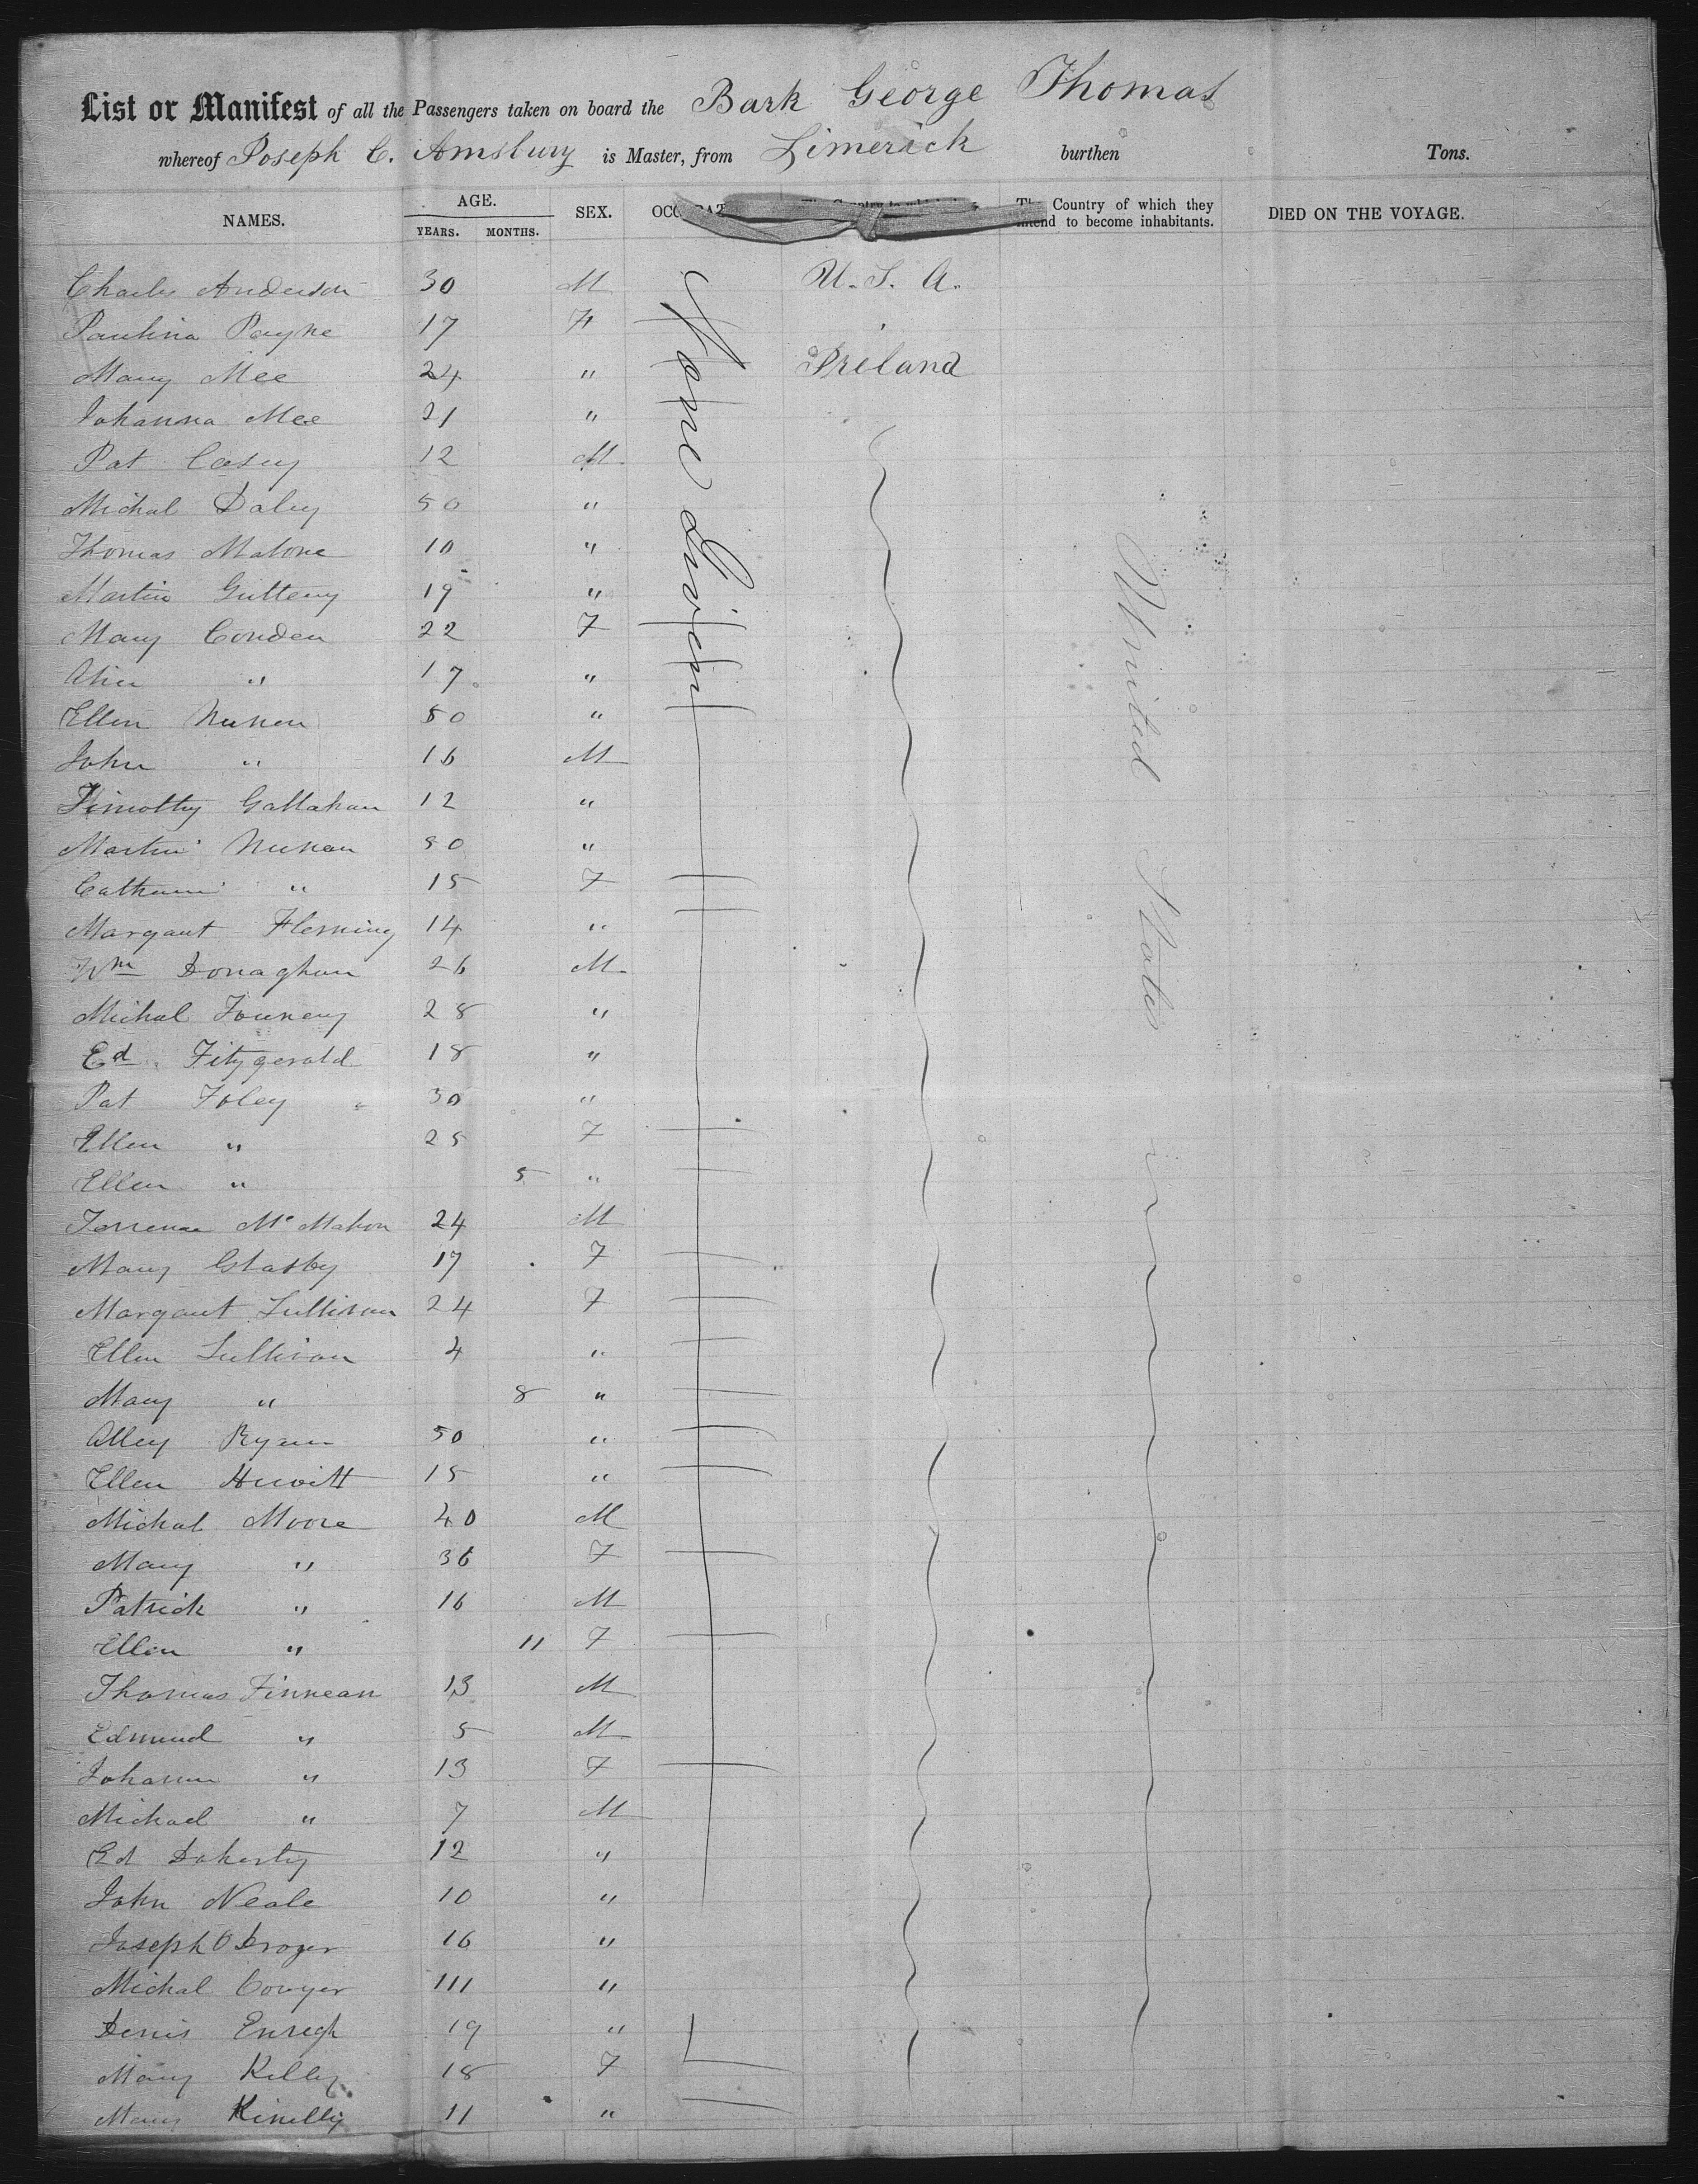 List or Manifest of all the Passengers taken on board the Bark George Thomas
whereof Joseph C. Amsbury is Master, from Limerick burthen Tons.
NAMES. AGE. YEARS. MONTHS. SEX. The Country of which they intend to become inhabitants. DIED ON THE VOYAGE.
None Given
United States
Charles Anderson 30 M U. S. A.
Paulina Payne 17 F
Mary Mee 24 " Ireland
Johanna Mee 21 "
Pat Casey 12 M
Michal Daley 50 "
Thomas Malone 10 "
Martin 19 "
Mary Conden 22 F
Alice " 17 "
Ellen Nunan 50 "
John " 16 M
Timothy Gallahan 12 "
Martin Nunan 50 "
Catherine " 15 F
Margaret Fleming 14 "
Wm Donaghan 26 M
Michal 28 "
Ed. Fitzgerald 18 "
Pat Foley 30 "
Ellen " 25 F
Ellen " 5 "
Terrence McMahon 24 M
Mary Glasby 17 F
Margaret Sullivan 24 F
Ellen Sullivan 4 "
Mary " 8 "
Alley Ryan 50 "
Ellen Hewitt 15 "
Michal Moore 40 M
Mary " 36 F
Patrick " 16 M
Ellen " 11 F
Thomas Finnean 13 M
Edmund " 5 M
Johanna " 13 F
Michael " 7 M
Ed Doherty 12 "
John Neale 10 "
Joseph 16 "
Michal 111 "
Denis Enregh 19 "
Mary Killey 18 F
Mary Kinelly 11 "